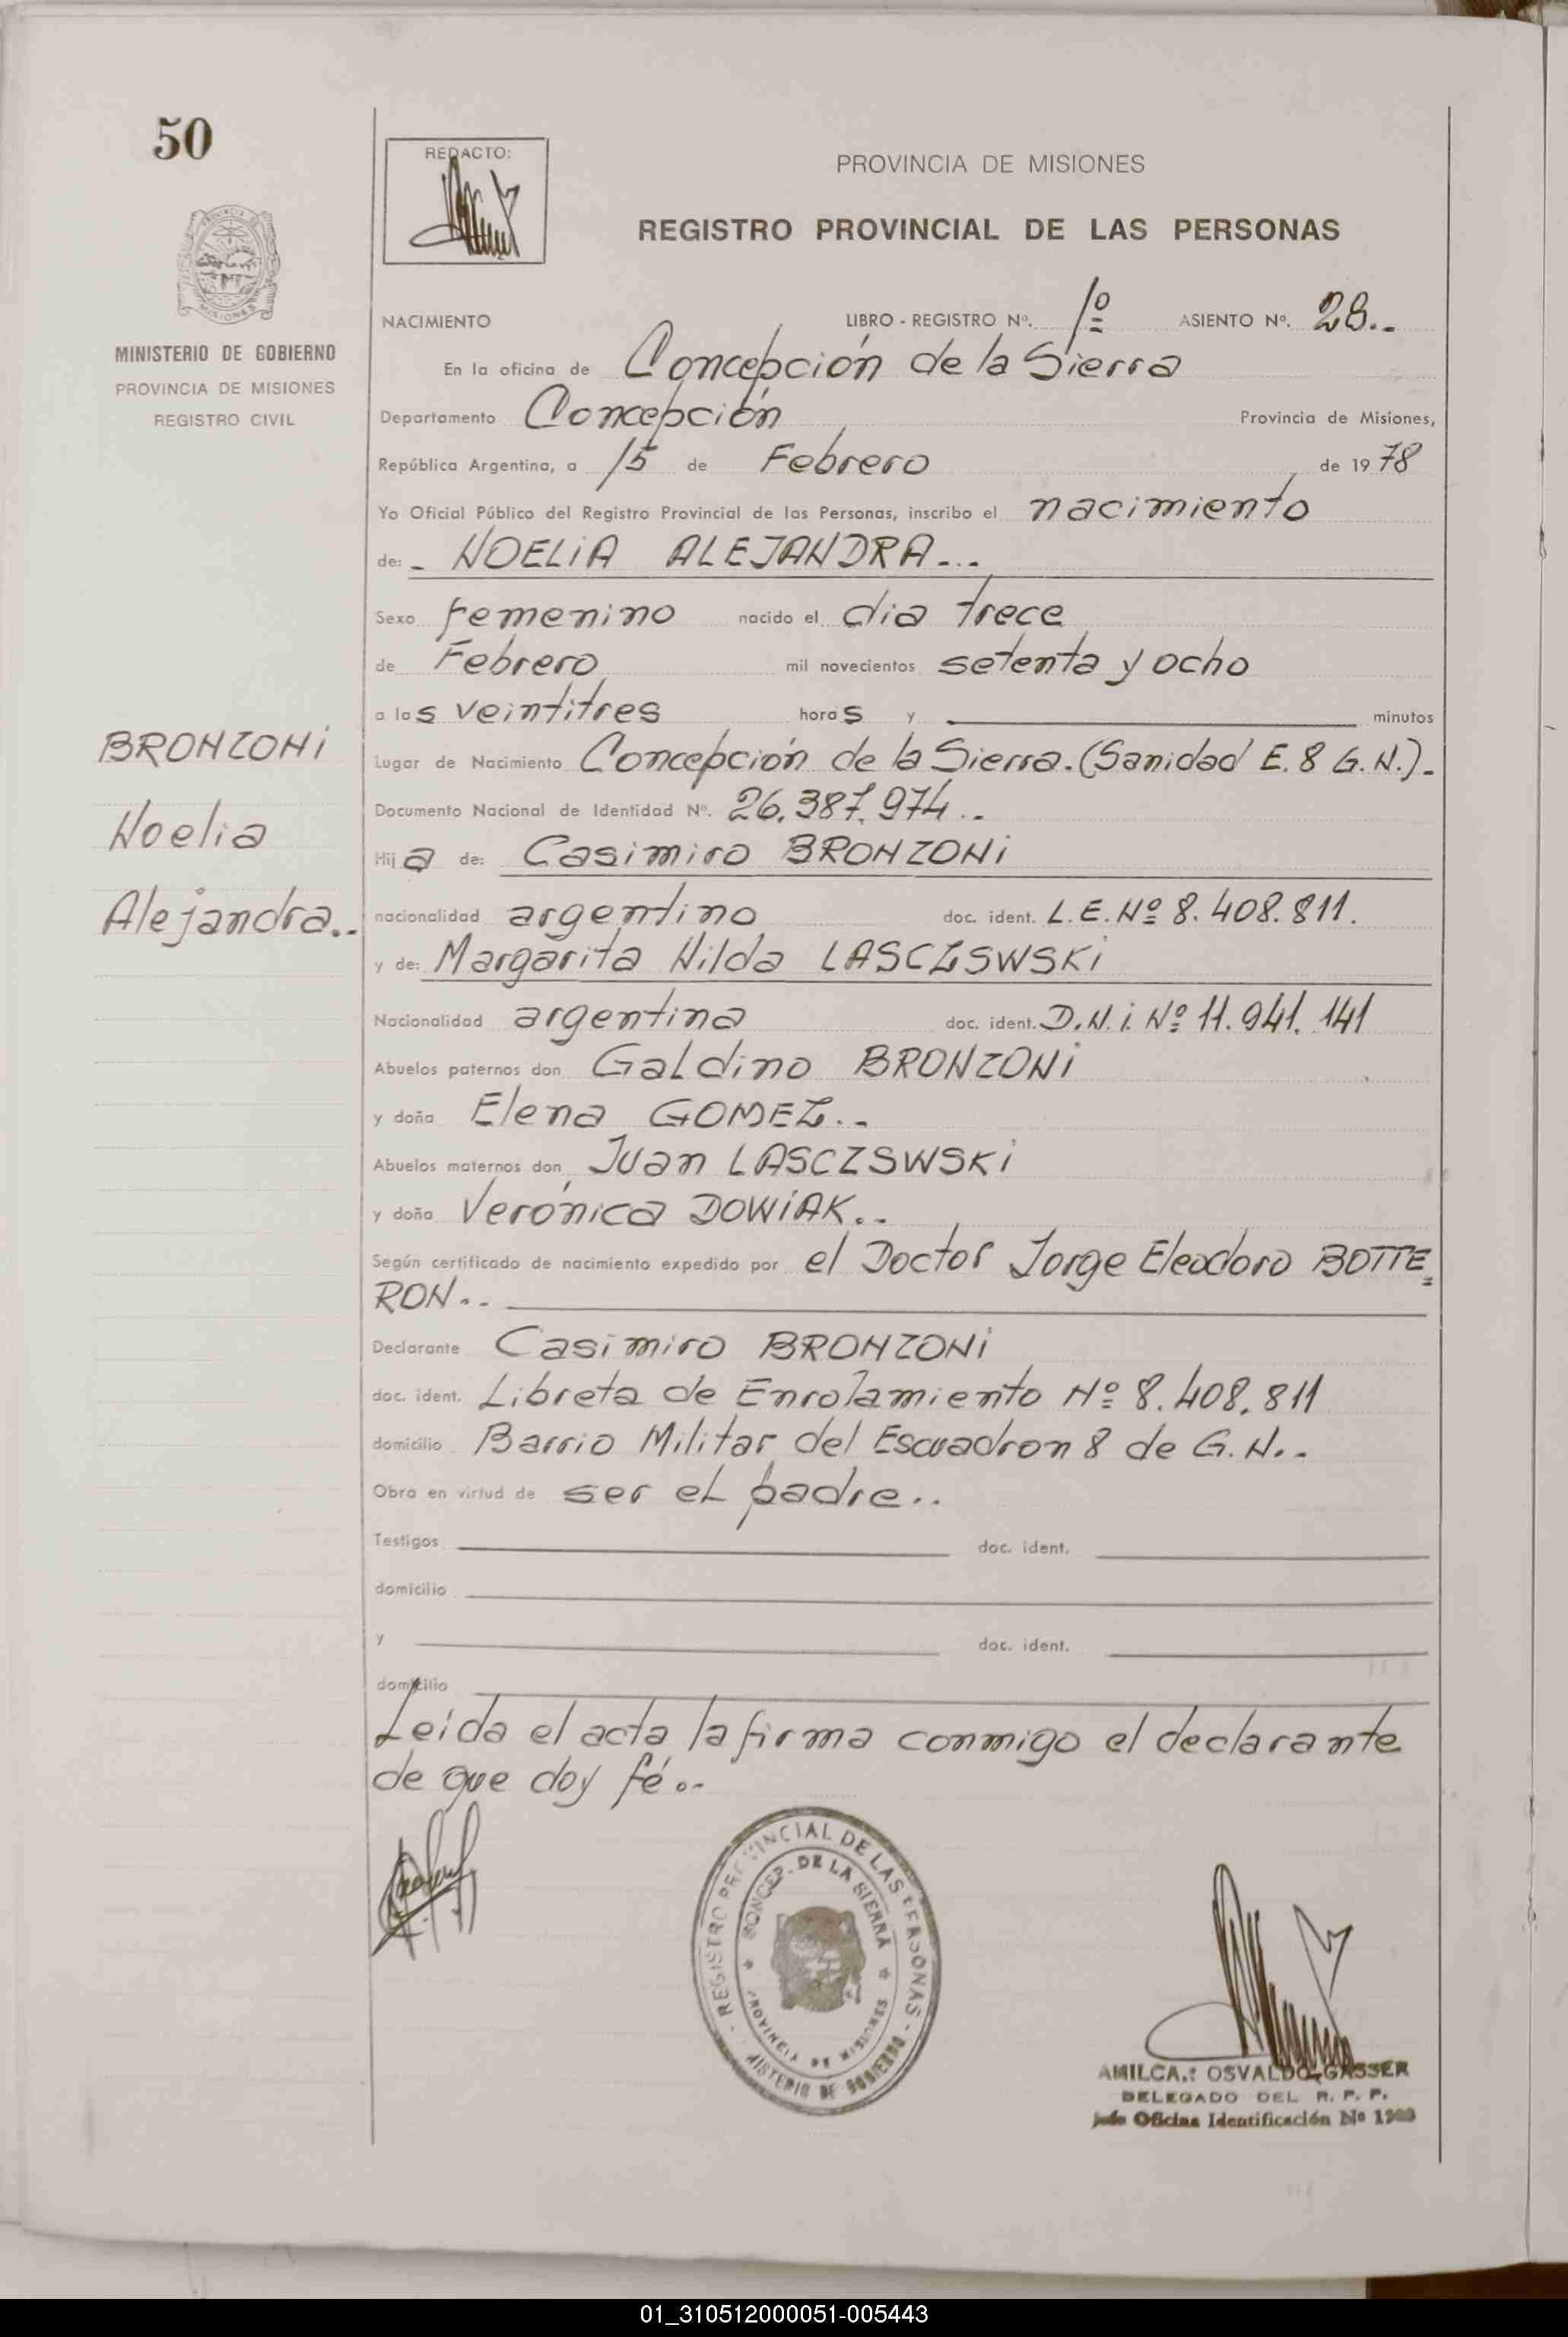 50
REDACTO:
PROVINCIA DE MISIONES
REGISTRO PROVINCIAL DE LAS PERSONAS
MISIONES
MINISTERIO DE GOBIERNO
PROVINCIA DE MISIONES
REGISTRO CIVIL
NACIMIENTO LIBRO - REGISTRO Nº. 1º ASIENTO Nº. 28..
En la oficina de Concepción de la Sierra
Departamento Concepción Provincia de Misiones,
República Argentina, a 15 de Febrero de 1978
Yo Oficial Público del Registro Provincial de las Personas, inscribo el nacimiento
de: - NOELIA ALEJANDRA...
Sexo femenino nacido el dia trece
de Febrero mil novecientos setenta y ocho
a las veintitres horas y minutos
BRONZONI
Noelia
Alejandra..
Lugar de Nacimiento Concepción de la Sierra. (Sanidad E. 8 G. N.).-
Documento Nacional de Identidad Nº. 26.387.974..
Hija de: Casimiro BRONZONI
nacionalidad argentino doc. ident. L.E. Nº 8.408.811.
y de: Margarita Hilda LASCZSWSKI
Nacionalidad argentina doc. ident. D.N.i. Nº 11.941.141
Abuelos paternos don Galdino BRONZONI
y doña Elena GOMEZ..
Abuelos maternos don Juan LASCZSWSKI
y doña Verónica DOWIAK..
Según certificado de nacimiento expedido por el Doctor Jorge Eleodoro BOTTE=
RON..
Declarante Casimiro BRONZONI
doc. ident. Libreta de Enrolamiento Nº 8.408.811
domicilio Barrio Militar del Escuadron 8 de G. N..
Obra en virtud de ser el padre..
Testigos doc. ident.
domicilio
y doc. ident.
domicilio
Leída el acta la firma conmigo el declarante
de que doy fé..
REGISTRO PROVINCIAL DE LAS PERSONAS
CONCEP. DE LA SIERRA
PROVINCIA DE MISIONES
MINISTERIO DE GOBIERNO
OSVALDO GASSER
DELEGADO DEL R. P. P.
Jefe Oficina Identificación Nº
01_310512000051-005443